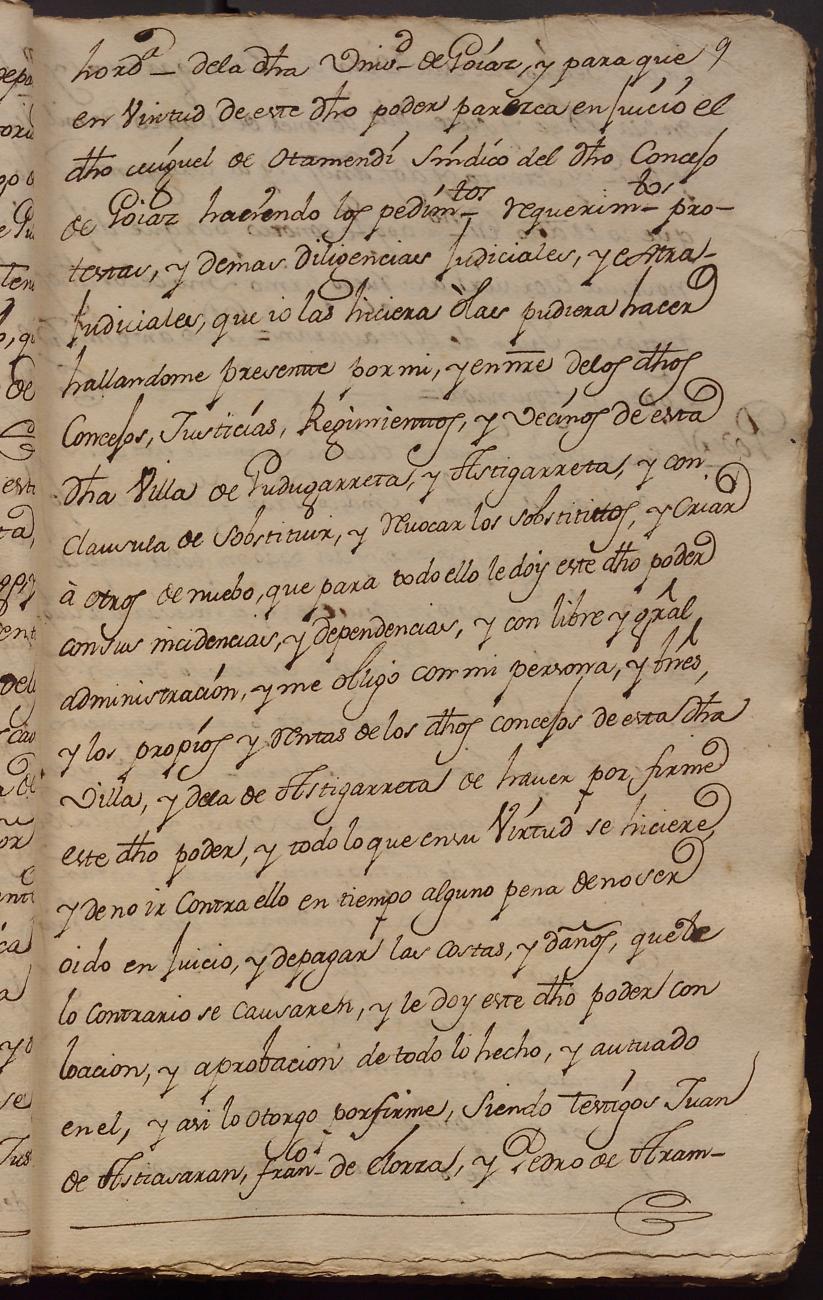 hord.ª dela dha Univ.d de Goiaz, y para que 9
en Virtud de este dho poder parezca en Juicio el
dho Miguel de Otamendi Síndico del dho Concejo
de Goiaz haciendo los pedim.tos requerim.tos pro-
testas, y demas diligencias Judiciales, y extra-
Judiciales, que io las hiciera ò las pudiera hacer
hallandome presente por mi, y en nre delos dhos
Concejos, Justicias, Regimientos, y Vecinos de esta
dha Villa de Gudugarreta, y Astigarreta, y con
Clausula de Sobstituir, y revocar los sobstitittos, y Criar
à otros de nuebo, que para todo ello le doy este dho poder
con sus incidencias, y dependencias, y con libre y gral
administración, y me obligo con mi persona, y bnes,
y los propios y rentas de los dhos concejos de esta dha
Villa, y dela de Astigarreta de haver por firme
este dho poder, y todo lo que en su Virtud se hiciere,
y de no ir Contra ello en tiempo alguno pena de no ser
oido en Juicio, y de pagar las costas, y daños, que de
lo Contrario se causaren, y le doy este dho poder con
loacion, y aprobacion de todo lo hecho, y autuado
en el, y asi lo otorgo por firme, Siendo testigos Juan
de Astiasaran, Fran.co de Elorza, y Pedro de Aram-